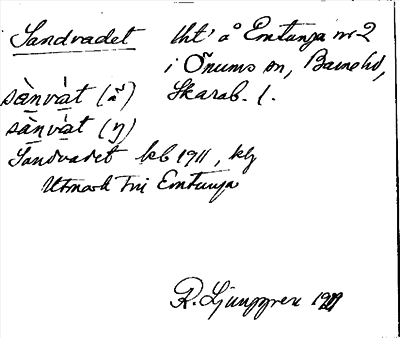 Sandvadet
Uht' å Emtunga nr 2
i Önums sn, Barne hd,
Skarab. l.
sànvàt (ã)
sànvàt (η)
Sandvadet kb 1911, kg
Utmark Till Emtunga
R. Ljunggren